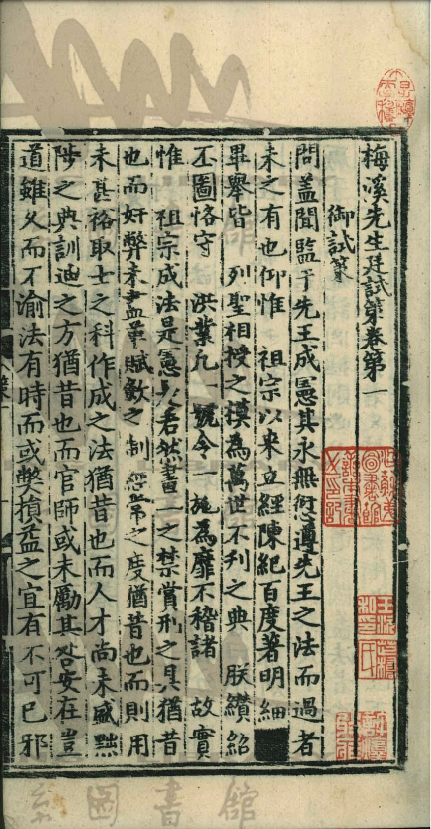 梅溪先生廷試策卷第一
御試策
問蓋聞監于先王成憲其永無愆遵先王之法而過者
未之有也仰惟 祖宗以来立經陳紀百度著明細
畢舉皆 列聖相授之模為萬世不刊之典 朕纘紹
丕圖恪守 洪業凡一號令一施為靡不稽諸 故實
惟 祖宗成法是憲是若然畫一之禁賞刑之具猶昔
也而奸弊未盡革賦斂之制經常之度猶昔也而財用
未甚裕取士之科作成之法猶昔也而人才尚未盛黜
陟之典訓迪之方猶昔也而官師或未勵其咎安在豈
道雖久而不渝法有時而或弊損益之宜有不可已邪
圖書館